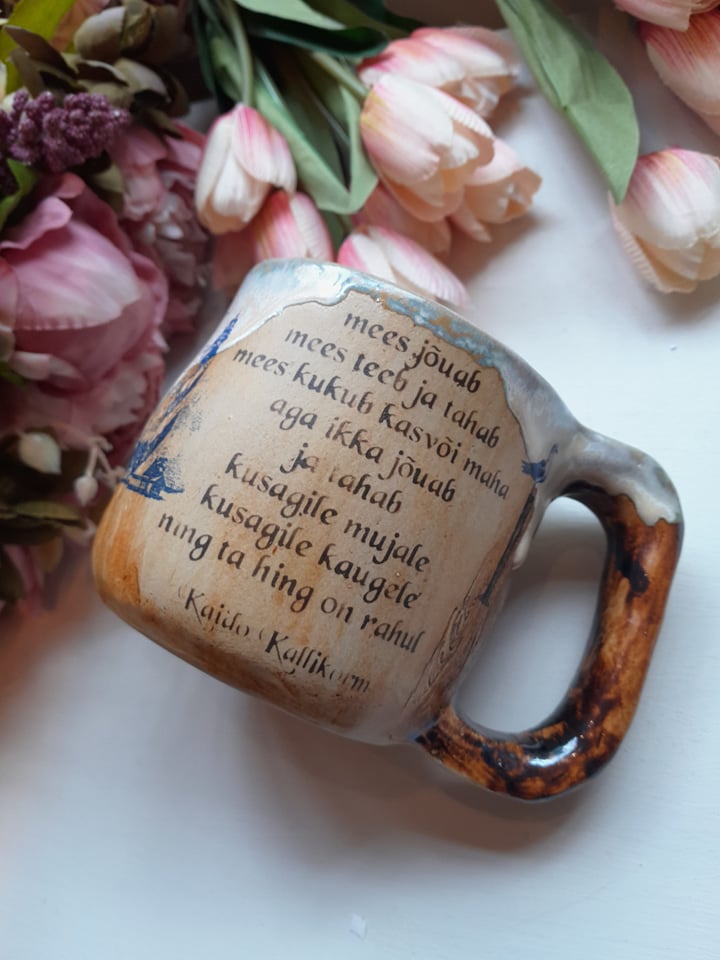 mees jõuab
mees teeb ja tahab
mees kukub kasvõi maha
aga ikka jõuab
ja tahab
kusagile mujale
kusagile kaugele
ning ta hing on rahul
Kaido Kallikorm